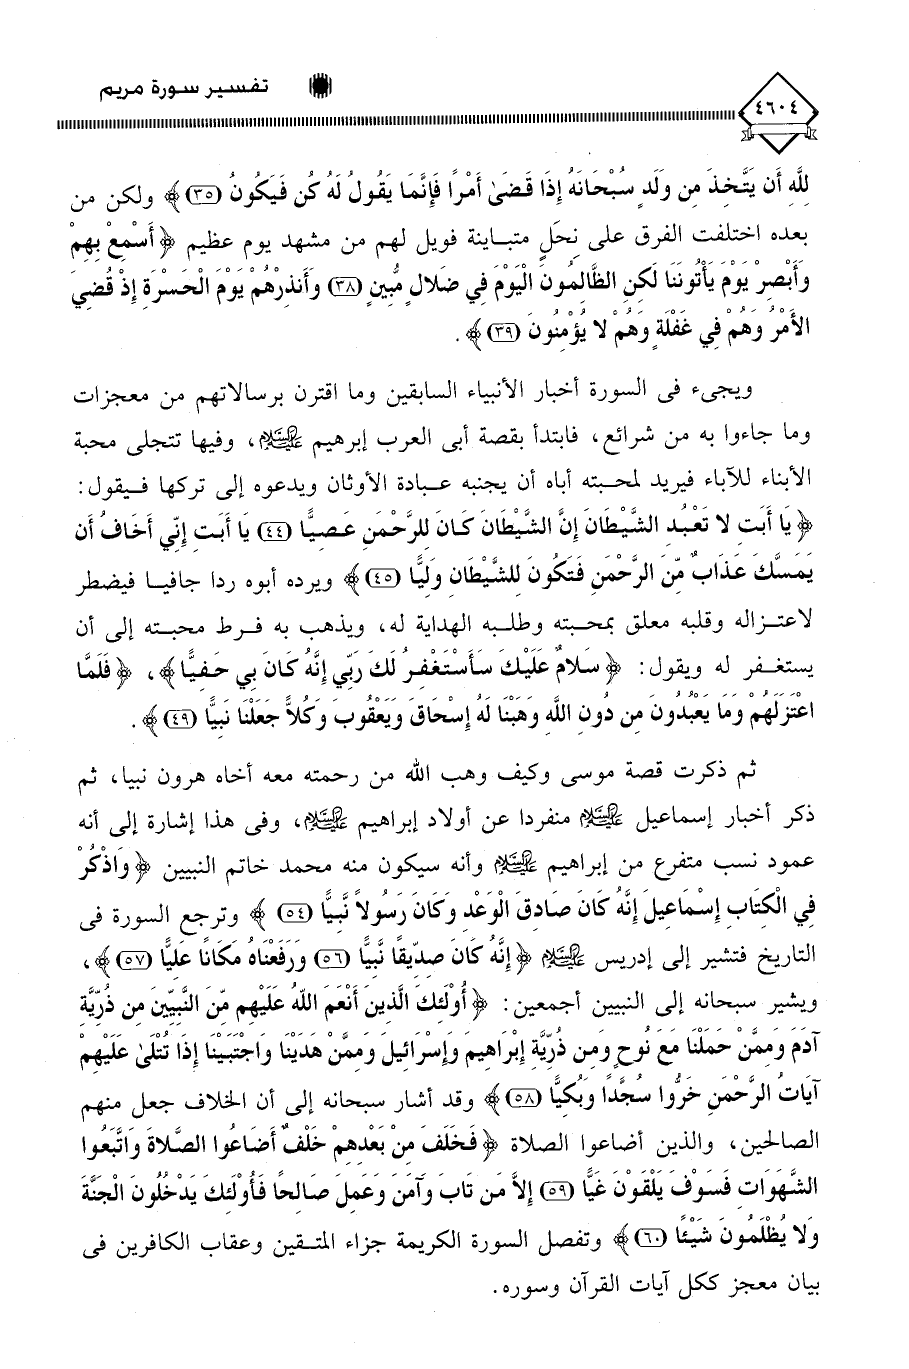 ٤٦٠٤ تفسير سورة مريم
لِلَّهِ أَن يَتَّخِذَ مِن وَلَدٍ سُبْحَانَهُ إِذَا قَضَىٰ أَمْرًا فَإِنَّمَا يَقُولُ لَهُ كُن فَيَكُونُ (٣٥)﴾ ولكن من
بعده اختلفت الفرق على نِحَلٍ متباينة فويل لهم من مشهد يوم عظيم ﴿أَسْمِعْ بِهِمْ
وَأَبْصِرْ يَوْمَ يَأْتُونَنَا لَكِنِ الظَّالِمُونَ الْيَوْمَ فِي ضَلالٍ مُّبِينٍ (٣٨) وَأَنذِرْهُمْ يَوْمَ الْحَسْرَةِ إِذْ قُضِيَ
الأَمْرُ وَهُمْ فِي غَفْلَةٍ وَهُمْ لا يُؤْمِنُونَ (٣٩)﴾.
ويجىء فى السورة أخبار الأنبياء السابقين وما اقترن برسالاتهم من معجزات
وما جاءوا به من شرائع، فابتدأ بقصة أبى العرب إبراهيم عليه السلام، وفيها تتجلى محبة
الأبناء للآباء فيريد لمحبته أباه أن يجنبه عبادة الأوثان ويدعوه إلى تركها فيقول:
﴿يَا أَبَتِ لا تَعْبُدِ الشَّيْطَانَ إِنَّ الشَّيْطَانَ كَانَ لِلرَّحْمَنِ عَصِيًّا (٤٤) يَا أَبَتِ إِنِّي أَخَافُ أَن
يَمَسَّكَ عَذَابٌ مِّنَ الرَّحْمَنِ فَتَكُونَ لِلشَّيْطَانِ وَلِيًّا (٤٥)﴾ ويرده أبوه ردا جافيا فيضطر
لاعتزاله وقلبه معلق بمحبته وطلبه الهداية له، ويذهب به فرط محبته إلى أن
يستغفر له ويقول: ﴿سَلامٌ عَلَيْكَ سَأَسْتَغْفِرُ لَكَ رَبِّي إِنَّهُ كَانَ بِي حَفِيًّا﴾، ﴿فَلَمَّا
اعْتَزَلَهُمْ وَمَا يَعْبُدُونَ مِن دُونِ اللَّهِ وَهَبْنَا لَهُ إِسْحَاقَ وَيَعْقُوبَ وَكُلاًّ جَعَلْنَا نَبِيًّا (٤٩)﴾.
ثم ذكرت قصة موسى وكيف وهب الله من رحمته معه أخاه هرون نبيا، ثم
ذكر أخبار إسماعيل عليه السلام منفردا عن أولاد إبراهيم عليه السلام، وفى هذا إشارة إلى أنه
عمود نسب متفرع من إبراهيم عليه السلام وأنه سيكون منه محمد خاتم النبيين ﴿وَاذْكُرْ
فِي الْكِتَابِ إِسْمَاعِيلَ إِنَّهُ كَانَ صَادِقَ الْوَعْدِ وَكَانَ رَسُولاً نَّبِيًّا (٥٤)﴾ وترجع السورة فى
التاريخ فتشير إلى إدريس عليه السلام ﴿إِنَّهُ كَانَ صِدِّيقًا نَّبِيًّا (٥٦) وَرَفَعْنَاهُ مَكَانًا عَلِيًّا (٥٧)﴾،
ويشير سبحانه إلى النبيين أجمعين: ﴿أُوْلَئِكَ الَّذِينَ أَنْعَمَ اللَّهُ عَلَيْهِم مِّنَ النَّبِيِّينَ مِن ذُرِّيَّةِ
آدَمَ وَمِمَّنْ حَمَلْنَا مَعَ نُوحٍ وَمِن ذُرِّيَّةِ إِبْرَاهِيمَ وَإِسْرَائِيلَ وَمِمَّنْ هَدَيْنَا وَاجْتَبَيْنَا إِذَا تُتْلَىٰ عَلَيْهِمْ
آيَاتُ الرَّحْمَنِ خَرُّوا سُجَّدًا وَبُكِيًّا (٥٨)﴾ وقد أشار سبحانه إلى أن الخلاف جعل منهم
الصالحين، والذين أضاعوا الصلاة ﴿فَخَلَفَ مِنْ بَعْدِهِمْ خَلْفٌ أَضَاعُوا الصَّلاةَ وَاتَّبَعُوا
الشَّهَوَاتِ فَسَوْفَ يَلْقَوْنَ غَيًّا (٥٩) إِلاَّ مَن تَابَ وَآمَنَ وَعَمِلَ صَالِحًا فَأُوْلَئِكَ يَدْخُلُونَ الْجَنَّةَ
وَلا يُظْلَمُونَ شَيْئًا (٦٠)﴾ وتفصل السورة الكريمة جزاء المتقين وعقاب الكافرين فى
بيان معجز ككل آيات القرآن وسوره.